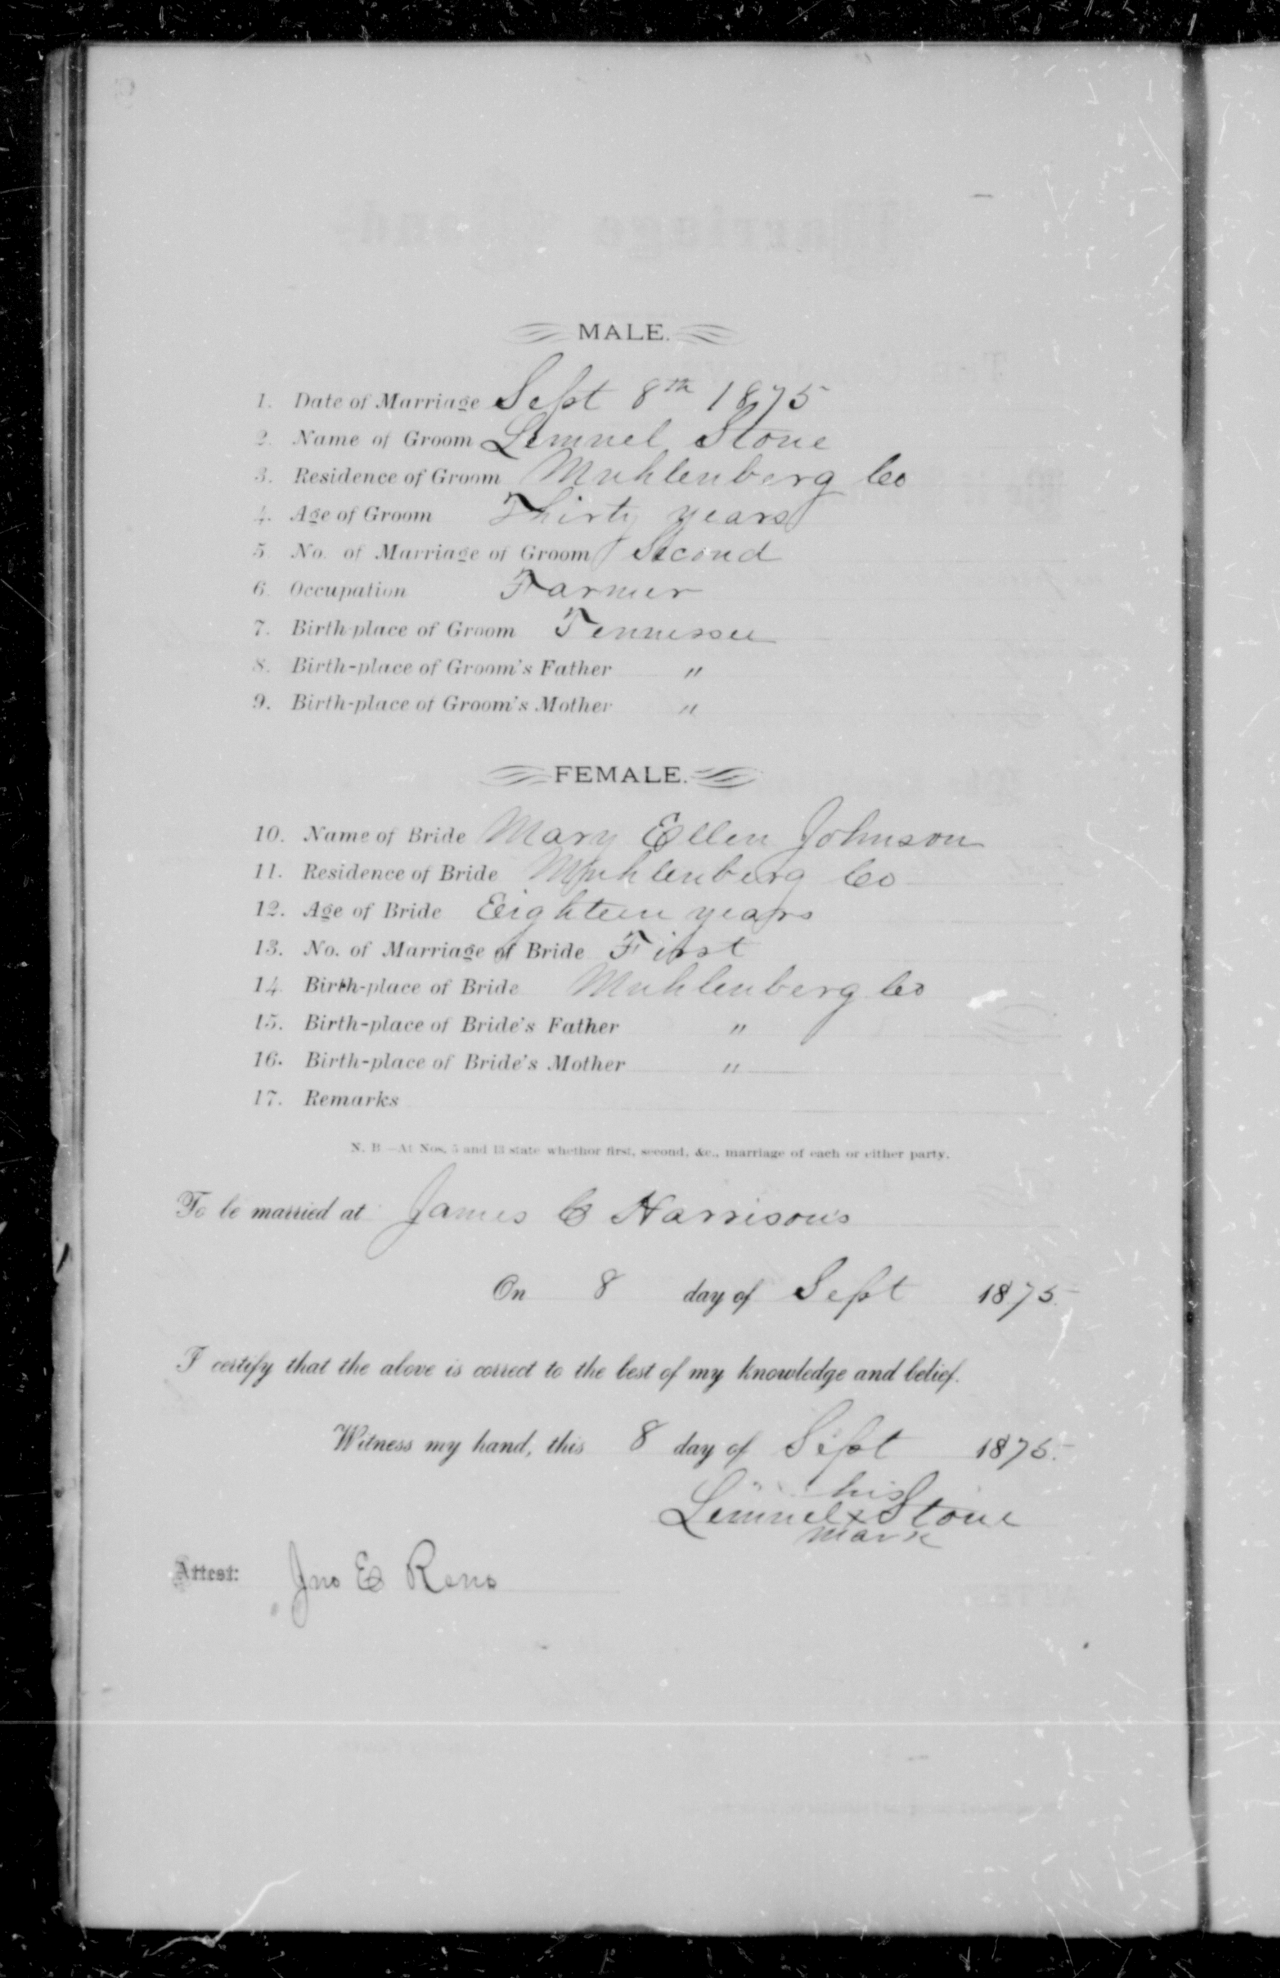 MALE.
1. Date of Marriage Sept 8th 1875
2. Name of Groom Lemuel Stone
3. Residence of Groom Muhlenberg Co
4. Age of Groom Thirty years
5 No. of Marriage of Groom Second
6. Occupation Farmer
7. Birth-place of Groom Tennessee
8. Birth-place of Groom's Father "
9. Birth-place of Groom's Mother "
FEMALE.
10. Name of Bride Mary Ellen Johnson
11. Residence of Bride Muhlenberg Co
12. Age of Bride Eighteen years
13. No. of Marriage of Bride First
14 Birth-place of Bride Muhlenberg Co
15. Birth-place of Bride's Father "
16. Birth-place of Bride's Mother "
17. Remarks
N. B.—At Nos. 5 and 13 state whether first, second, &c., marriage of each or either party.
To be married at James C Harrison's
On 8 day of Sept 1875.
I certify that the above is correct to the best of my knowledge and belief.
Witness my hand, this 8 day of Sept 1875.
his
Lemuel x Stone
mark
Attest: Jno E Reno